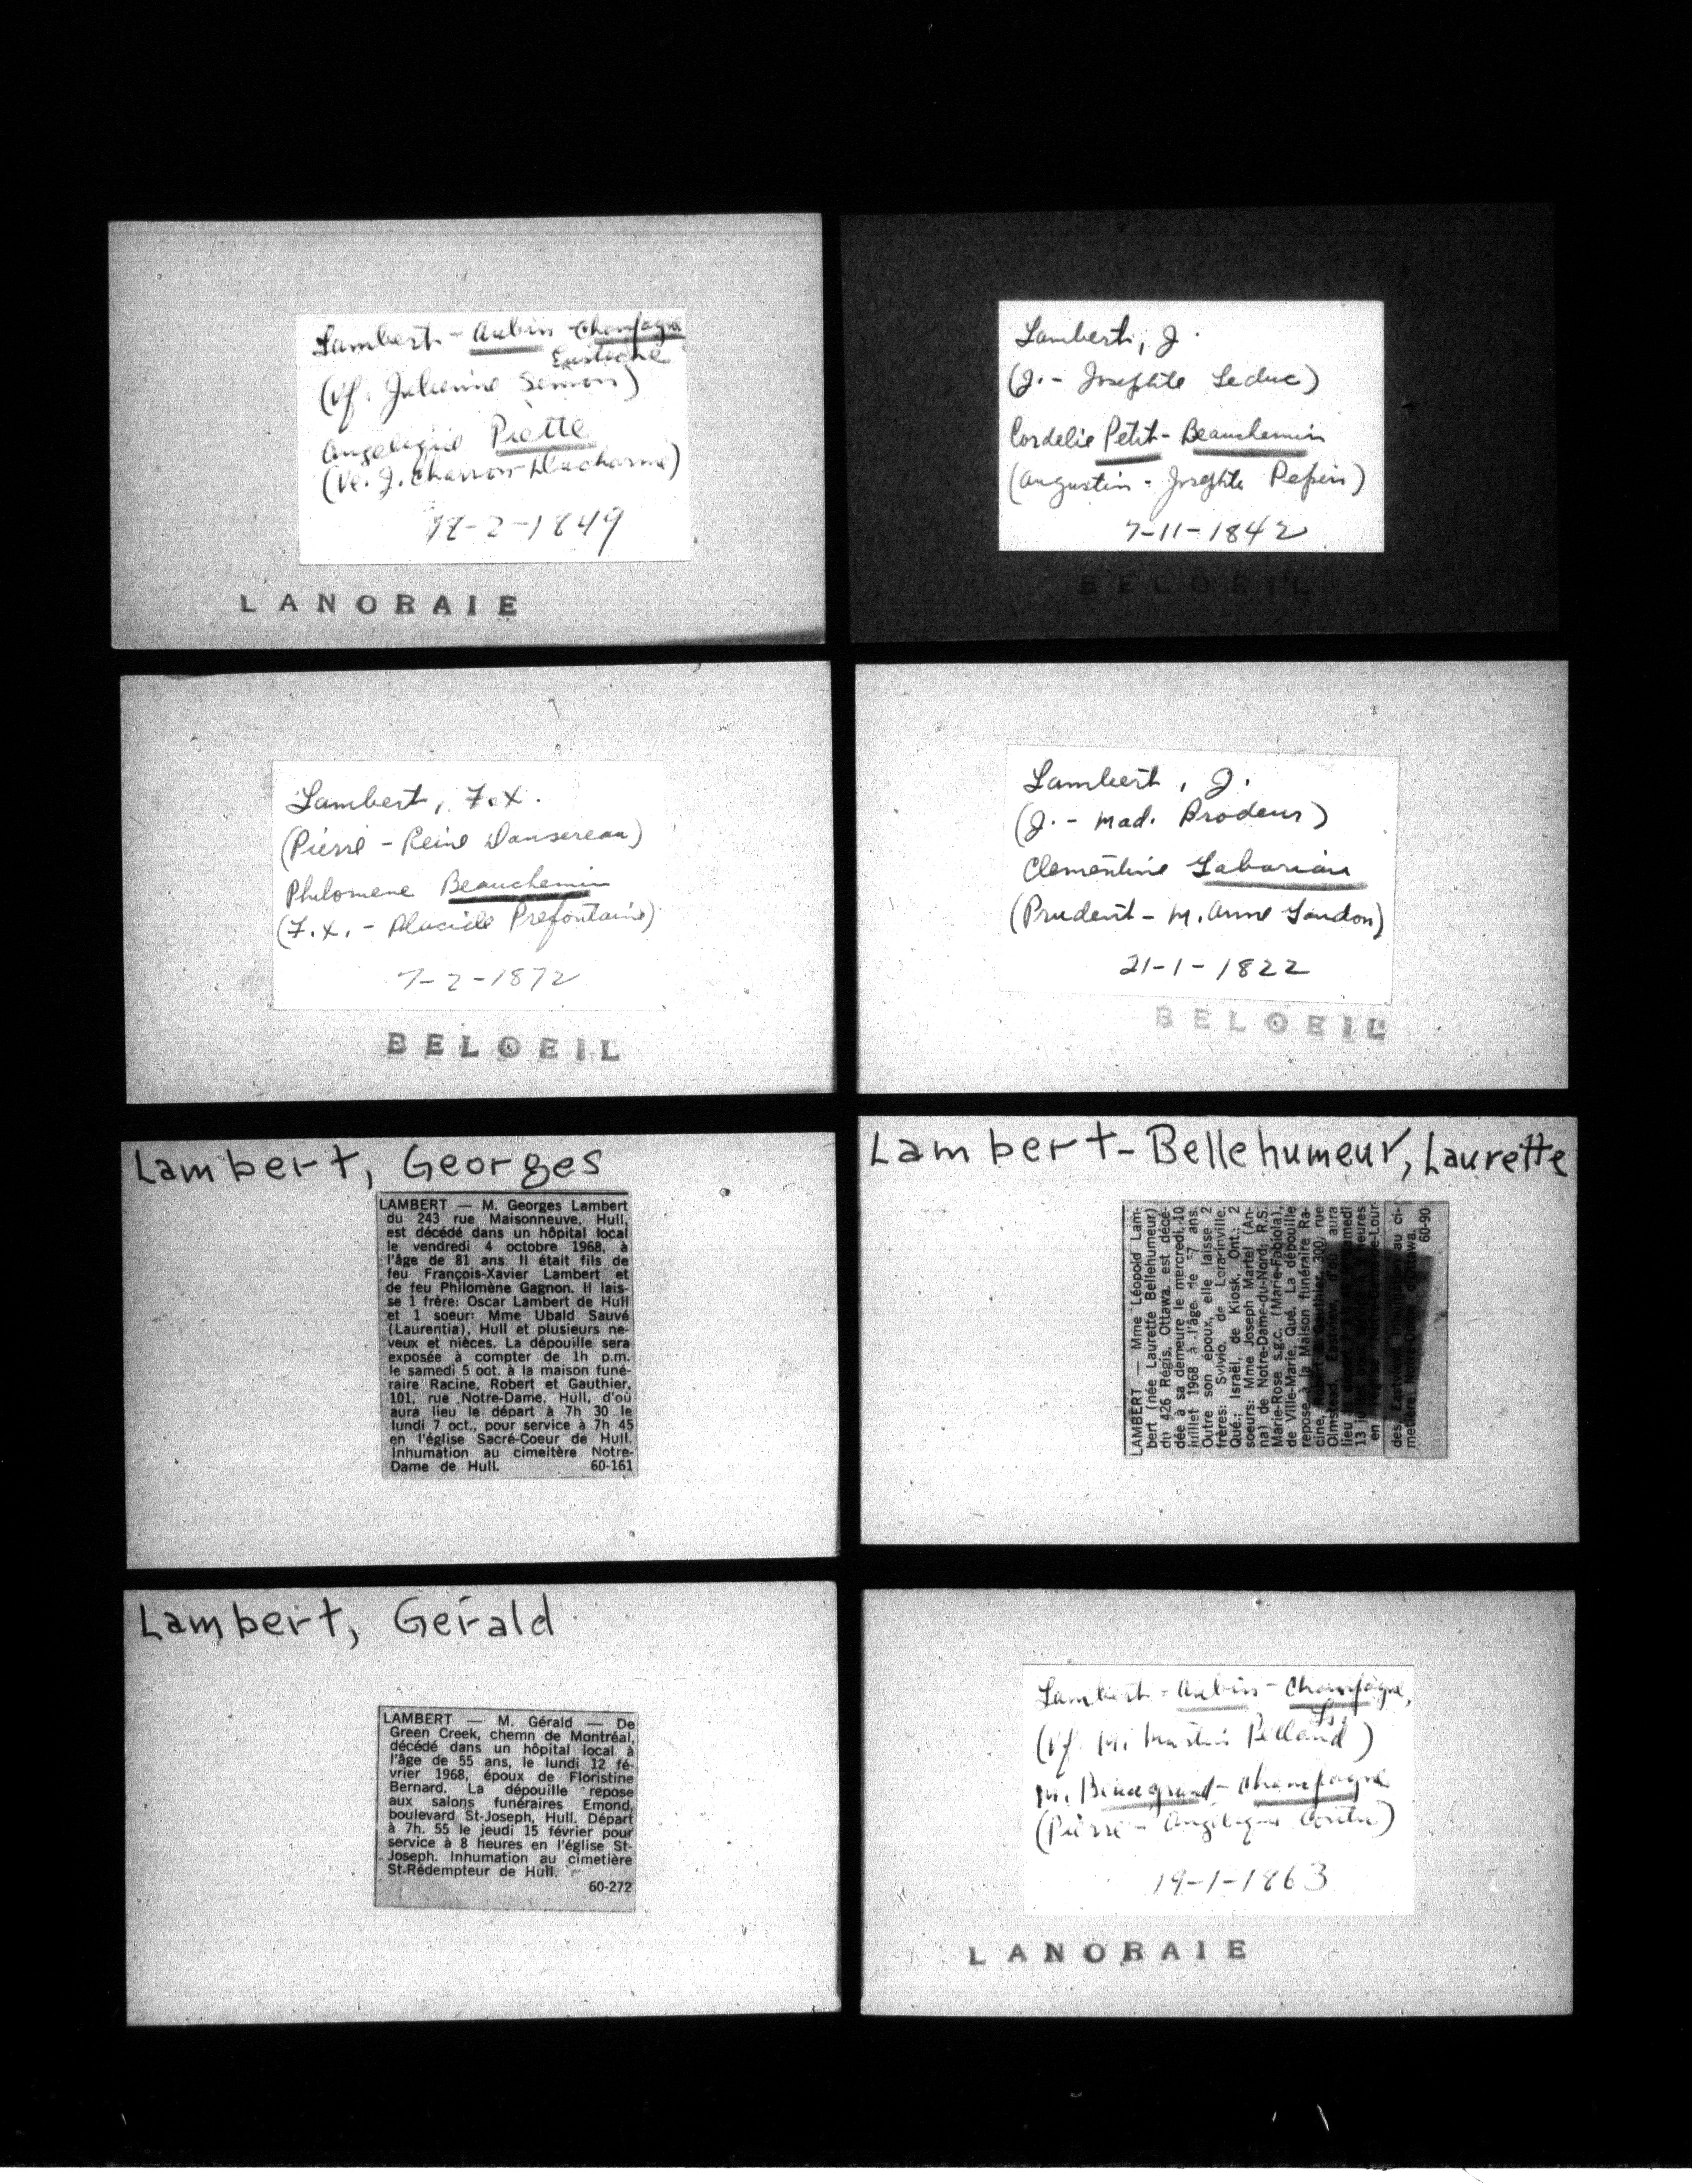 Lambert - Aubin - Champagne
Eustache
(Vf. Julienne Simon)
Angelique Piette
(Ve. J. Charron-Ducharme)
-2-1849
LANORAIE
Lambert, J.
(J. - Josephte Leduc)
Cordelie Petit-Beauchemin
(Augustin - Josephte Pepin)
7-11-1842
BELOEIL
Lambert, F.X.
(Pierre - Reine Dansereau)
Philomene Beauchemin
(F.X. - Placide Prefontaine)
7-2-1872
BELOEIL
Lambert, J.
(J. - Mad. Brodeur)
Clementine Labarian
(Prudent - M. Anne Landon)
21-1-1822
BELOEIL
Lambert, Georges
LAMBERT — M. Georges Lambert
du 243 rue Maisonneuve, Hull,
est décédé dans un hôpital local
le vendredi 4 octobre 1968, à
l'âge de 81 ans. Il était fils de
feu François-Xavier Lambert et
de feu Philomène Gagnon. Il lais-
se 1 frère: Oscar Lambert de Hull
et 1 soeur: Mme Ubald Sauvé
(Laurentia), Hull et plusieurs ne-
veux et nièces. La dépouille sera
exposée à compter de 1h p.m.
le samedi 5 oct. à la maison funé-
raire Racine, Robert et Gauthier,
101, rue Notre-Dame, Hull, d'où
aura lieu le départ à 7h 30 le
lundi 7 oct., pour service à 7h 45
en l'église Sacré-Coeur de Hull.
Inhumation au cimeitère Notre-
Dame de Hull. 60-161
Lambert-Bellehumeur, Laurette
LAMBERT — Mme Léopold Lam-
bert (née Laurette Bellehumeur)
du 426 Régis, Ottawa, est décé-
dée à sa demeure le mercredi, 10
juillet 1968 à l'âge de 7 ans.
Outre son époux, elle laisse 2
frères: Sylvio, de Lorrainville,
Qué.; Israël, de Kiosk, Ont.; 2
soeurs: Mme Joseph Martel (An-
na) de Notre-Dame-du-Nord; R.S.
Marie-Rose s.g.c. (Marie-Fabiola),
de Ville-Marie, Qué. La dépouille
repose à la Maison funéraire Ra-
cine, Robert & Gauthier, 300, rue
Olmstead, Eastview, d'où aura
lieu le départ samedi
13 juillet pour heures
en l'église Notre-Dame-de-Lour-
des, Eastview. Inhumation au ci-
metière Notre-Dame d'Ottawa.
60-90
Lambert, Gérald
LAMBERT — M. Gérald — De
Green Creek, chemn de Montréal,
décédé dans un hôpital local à
l'âge de 55 ans, le lundi 12 fé-
vrier 1968, époux de Floristine
Bernard. La dépouille repose
aux salons funéraires Emond,
boulevard St-Joseph, Hull. Départ
à 7h. 55 le jeudi 15 février pour
service à 8 heures en l'église St-
Joseph. Inhumation au cimetière
St-Rédempteur de Hull.
60-272
Lambert - Aubin - Champagne,
Ls.
(Vf. M. Pelland)
M. Beaugrand-Champagne
(Pierre - Angelique)
19-1-1863
LANORAIE